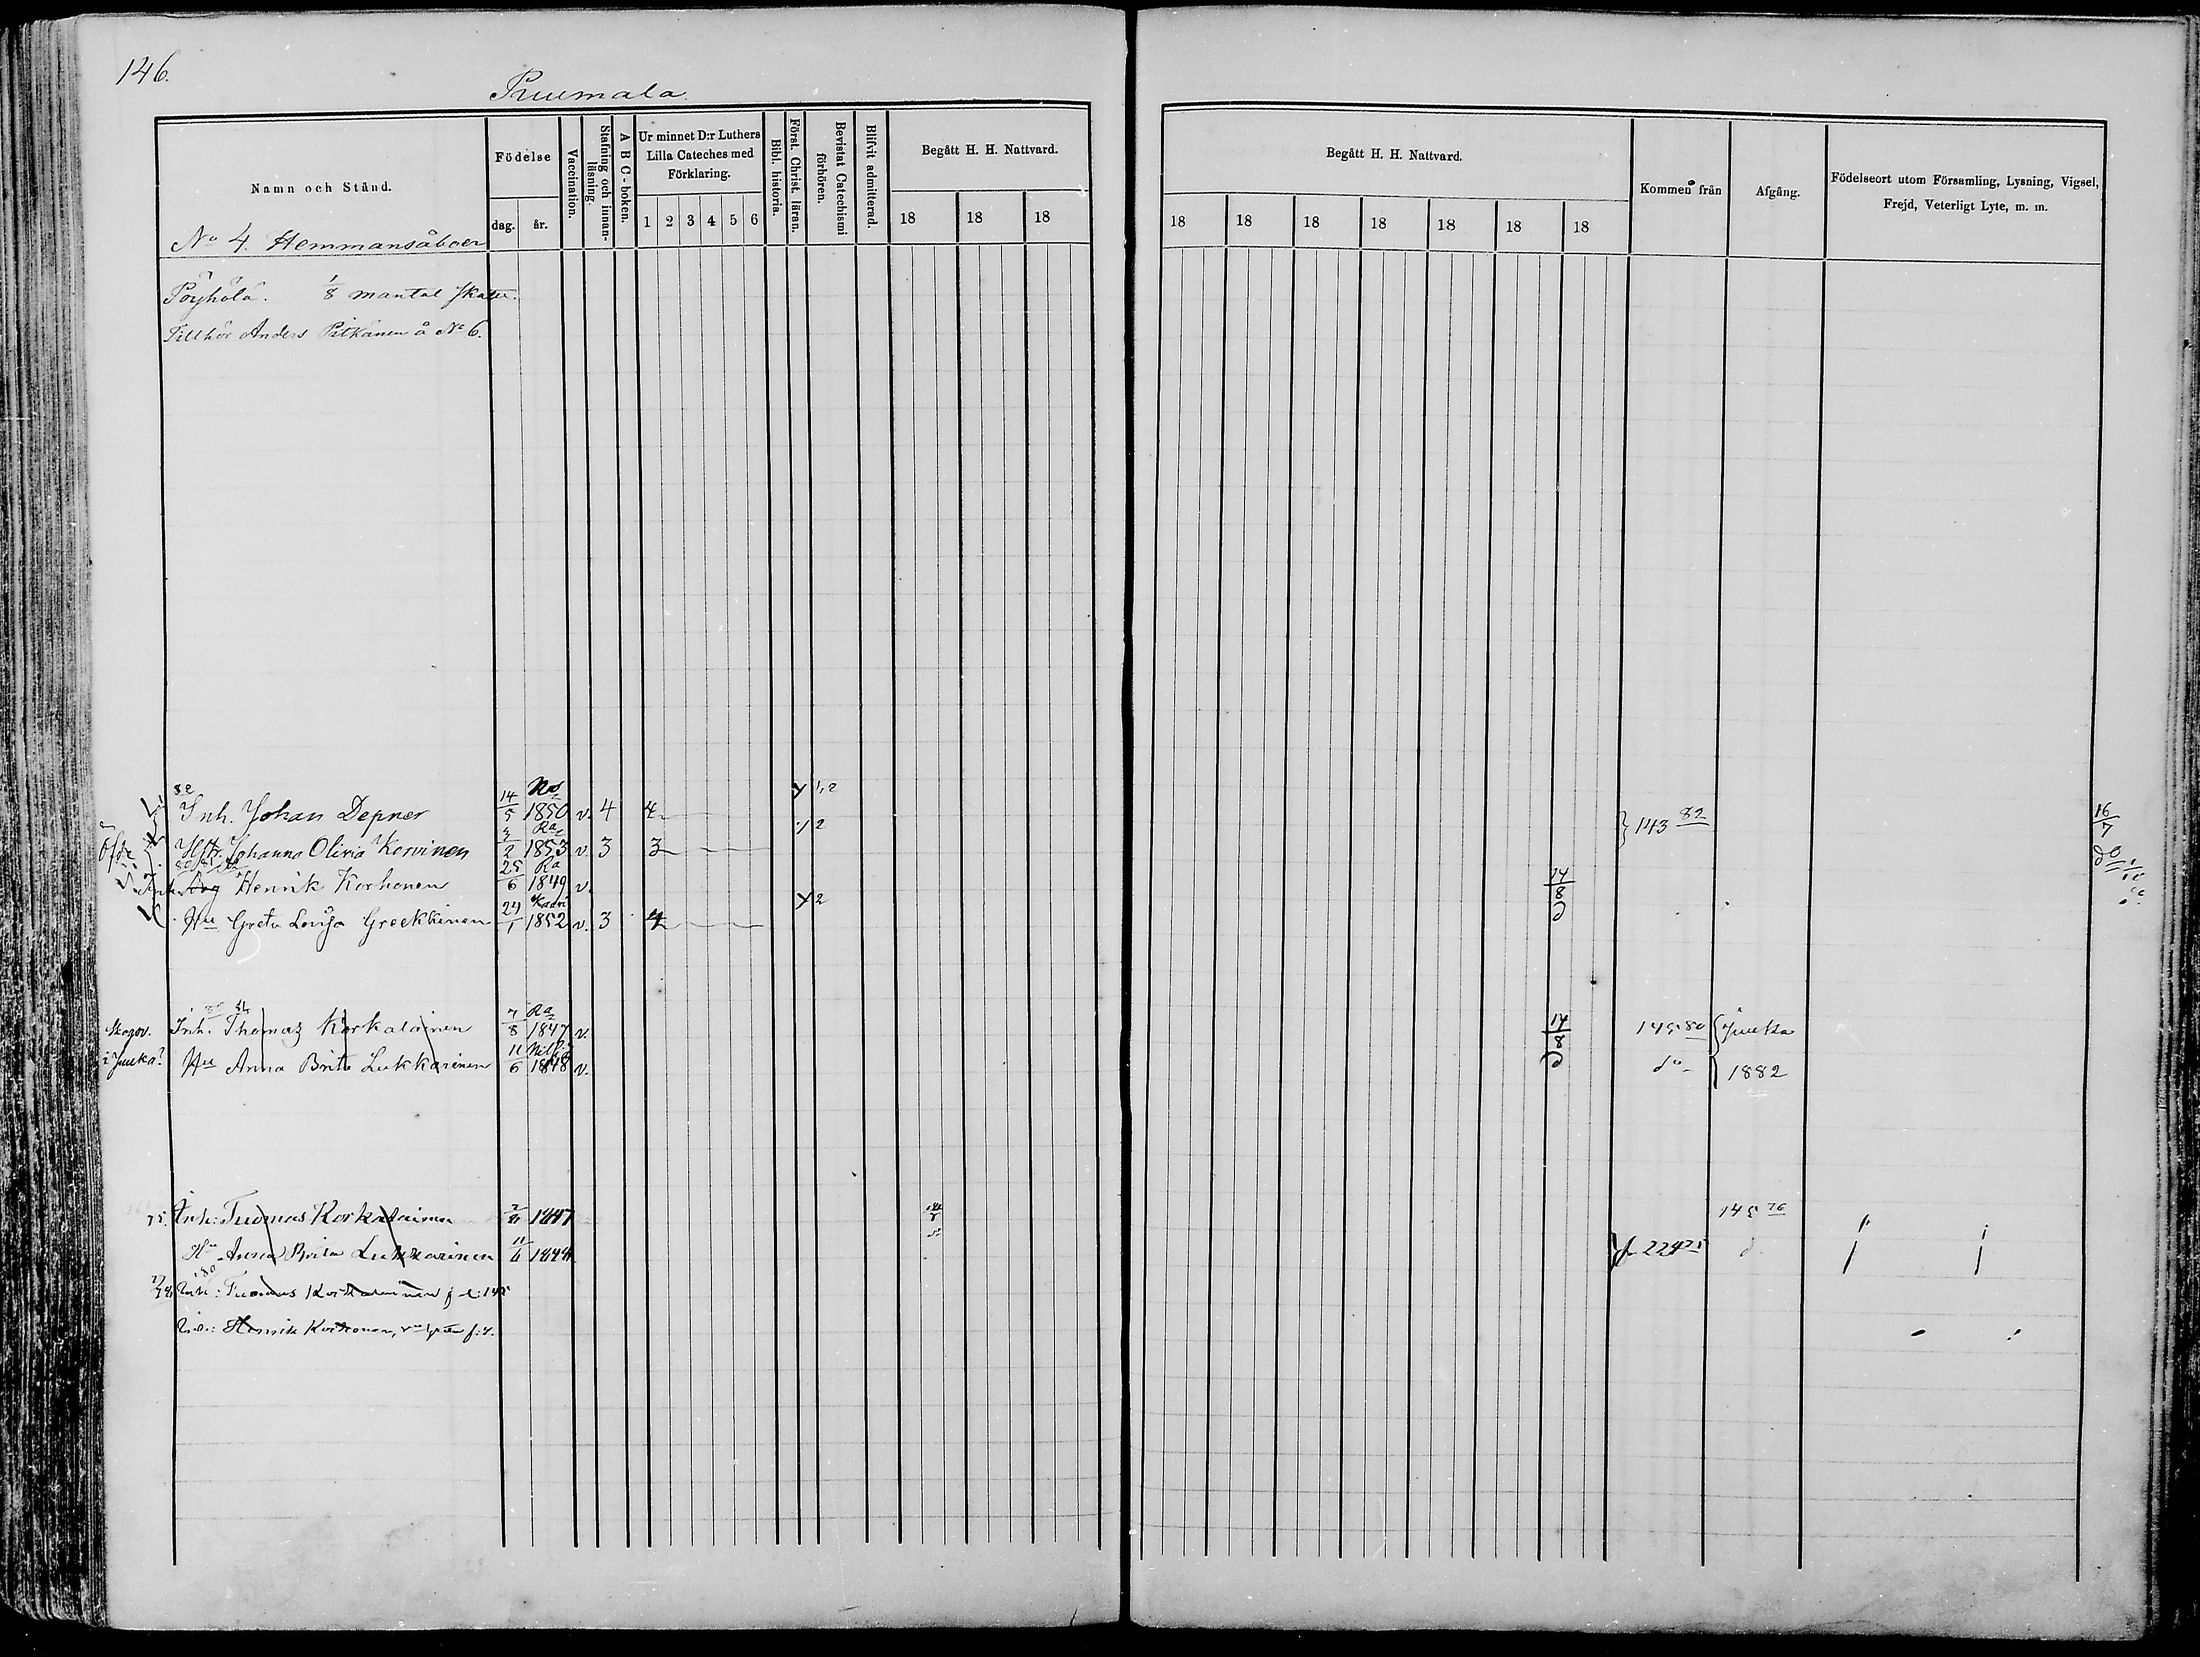 146.
Puumala
Namn och Stånd.
Födelse
dag. år.
Vaccination.
Stafning och innanläsning.
A B C-boken.
Ur minnet D:r Luthers Lilla Cateches med Förklaring.
1 2 3 4 5 6
Bibl. historia.
Först. Christ. läran.
Bevistat Catechismi förhören.
Blifvit admitterad.
Begått H. H. Nattvard.
18 18 18
Begått H. H. Nattvard.
18 18 18 18 18 18 18
Kommen från
Afgång.
Födelseort utom Församling, Lysning, Vigsel, Frejd, Veterligt Lyte, m. m.
No 4. Hemmansåboer
Pöyhölä. 1/8 mantal skatte.
Tillhör Anders Pitkänen å No 6.
Inh. Johan Depner 14/5 1850 v. 4 4 143 82 16/7
Hstr. Johanna Olivia Korvinen 1853 v. 3 3
Henrik Korhonen 25/6 Ra 1849 v. 14/8
Hu Greta Lovisa Greekkinen 24/1 1852 v. 3 4
Skogv. Inh. Thomas Korkalainen 7/8 Ra 1847 v. 14/8 145 80 Juuka
i Juuka? Hu Anna Brita Lukkarinen 11/6 1848 v. do 1882
75. Inh: Tuomas Korkalainen 1847 145 76
Hu Anna Brita Lukkarinen 11/6 1848 224 75
Inh: Tuomas Korkalainen
Henrik Korhonen